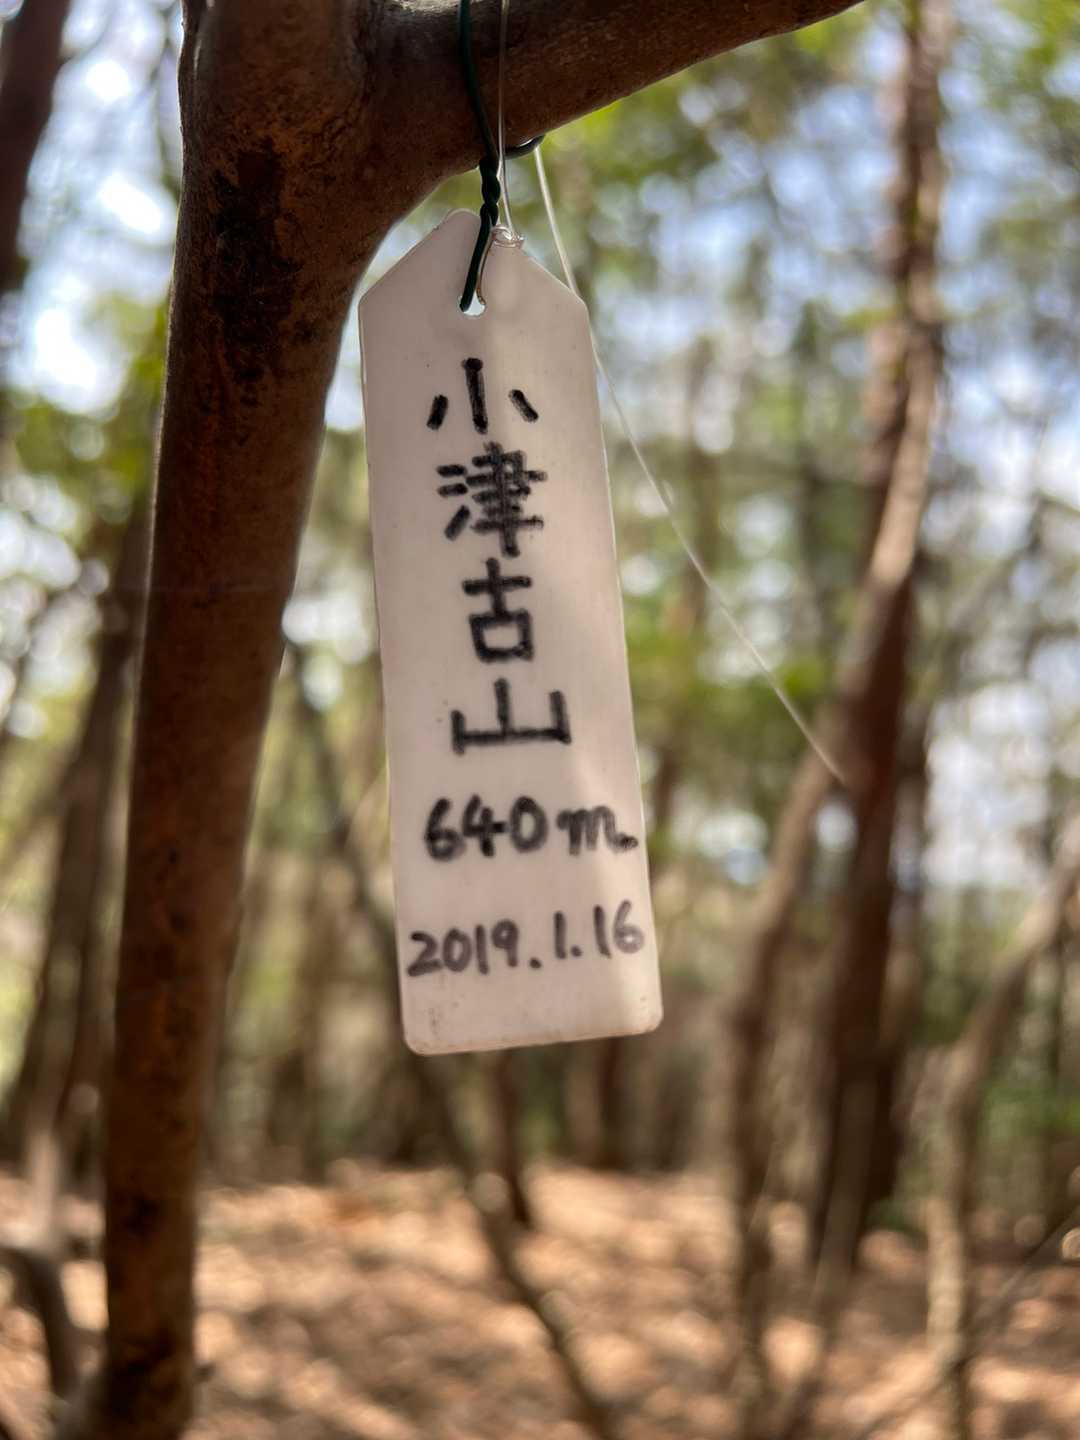 小津古山
640m.
2019.1.16